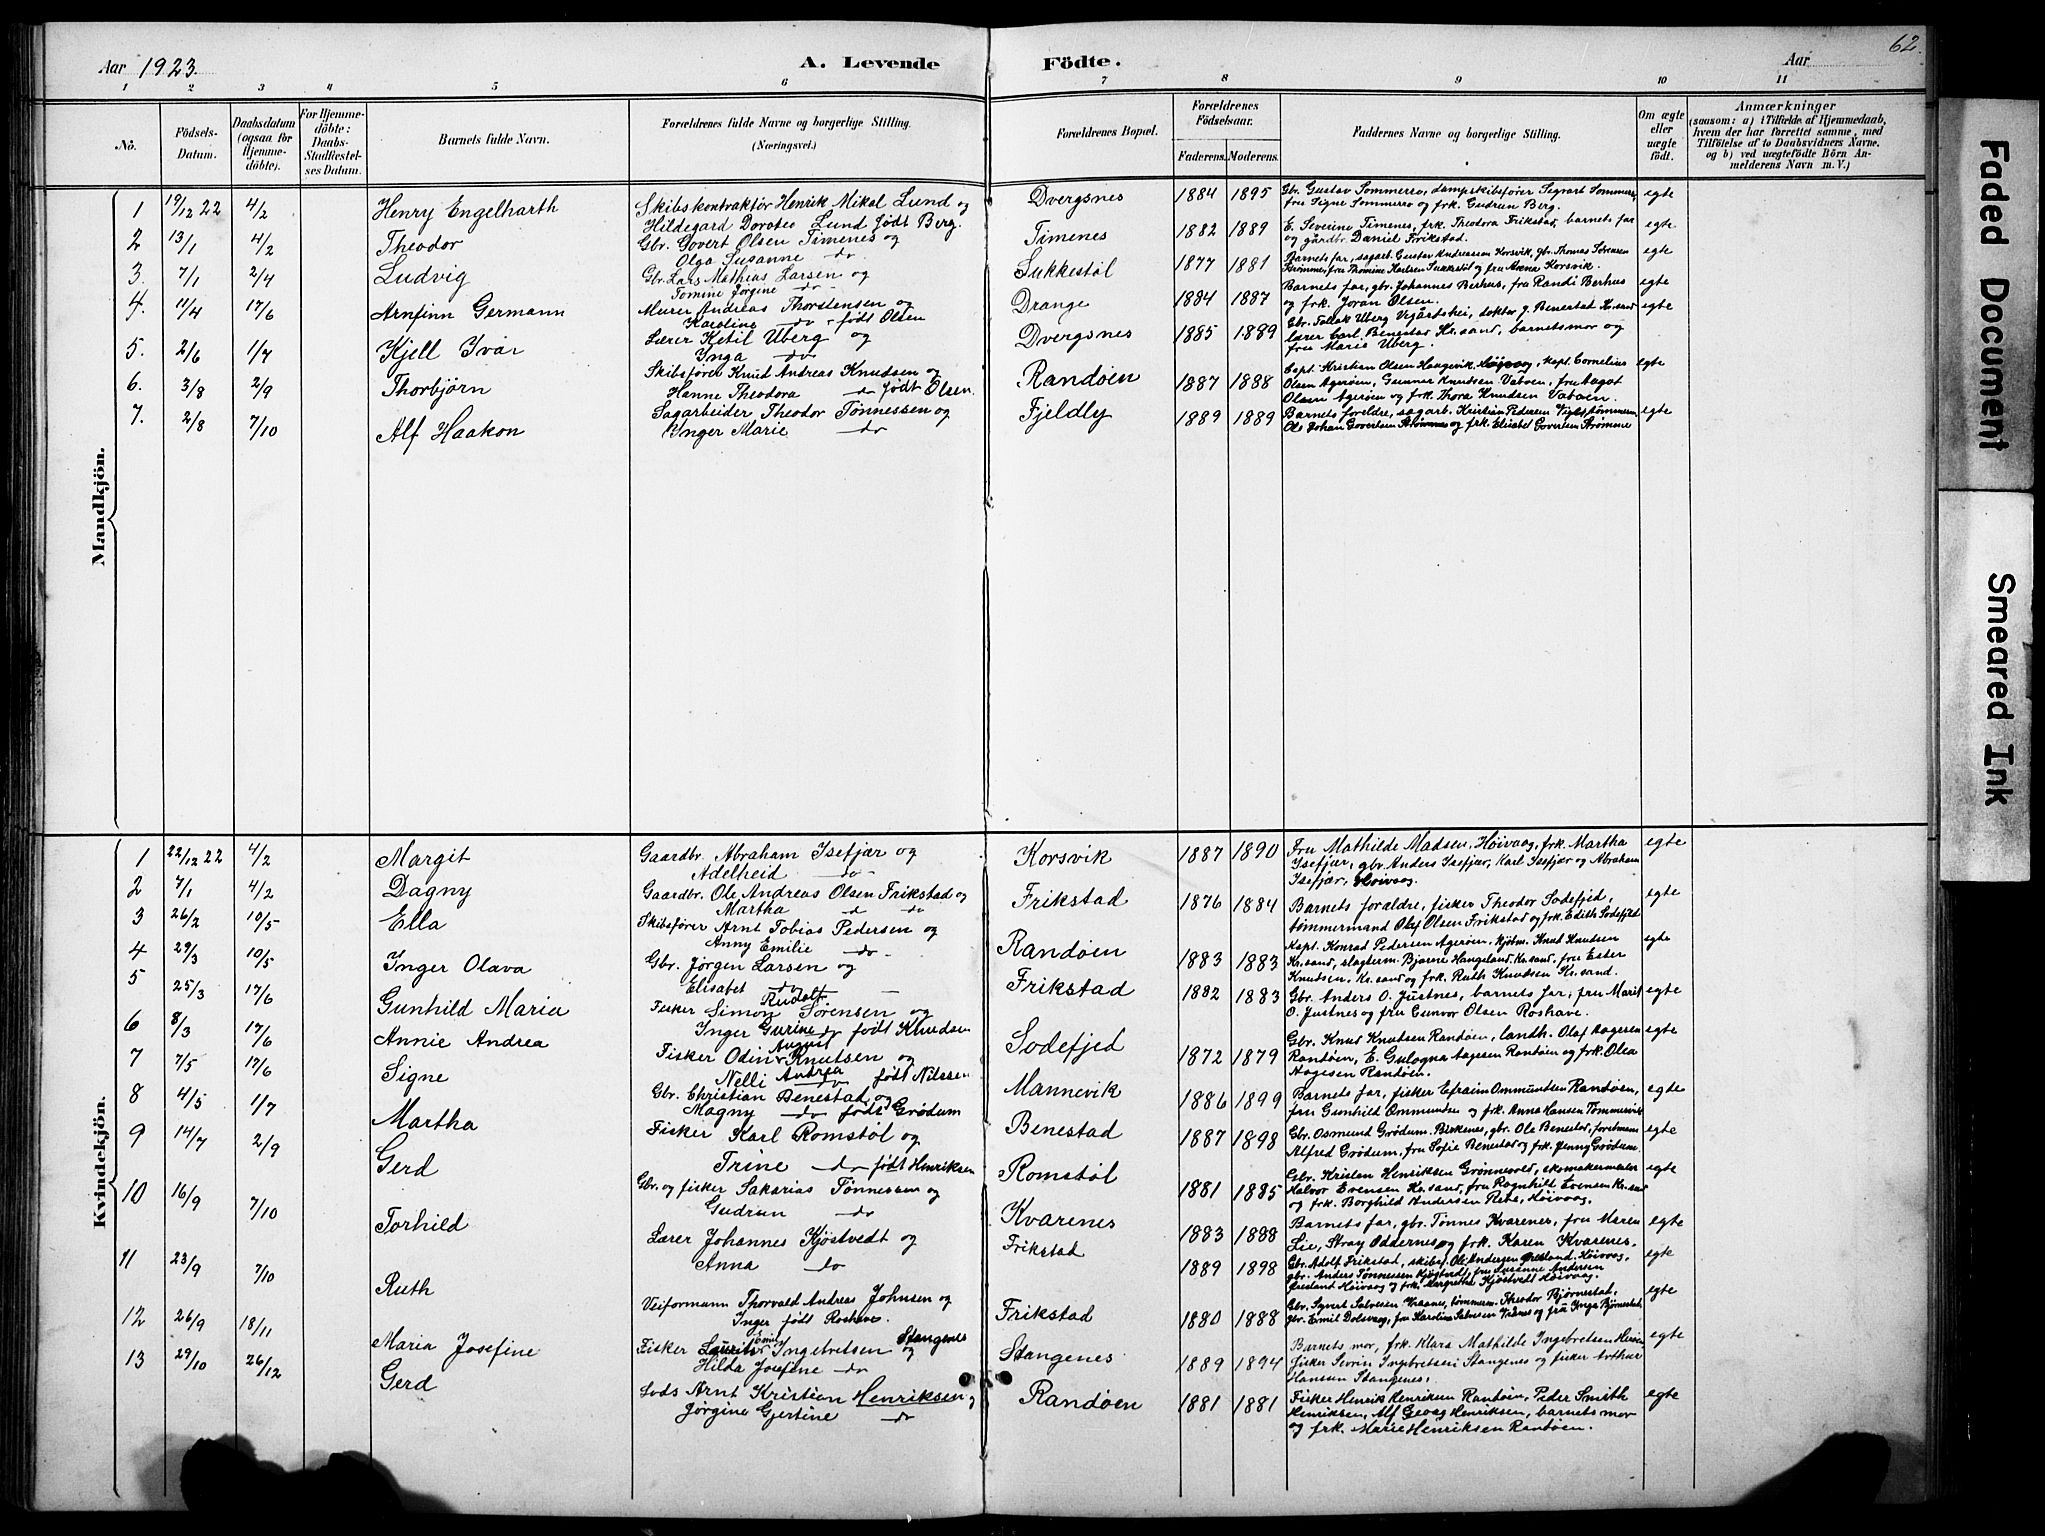 62.
Aar 1923. A. Levende Födte. Aar
1 2 3 4 5 6 7 8 9 10 11
No. Födsels-Datum. Daabsdatum (ogsaa for Hjemmedöbte). For Hjemmedöbte: Daabs-Stadfæstelses Datum. Barnets fulde Navn. Forældrenes fulde Navne og borgerlige Stilling. (Næringsvei.) Forældrenes Bopæl. Forældrenes Födselsaar. Faderens. Moderens. Faddernes Navne og borgerlige Stilling. Om ægte eller uægte födt. Anmærkninger (saasom: a) i Tilfælde af Hjemmedaab, hvem der har forrettet samme, med Tilföielse af to Daabsvidners Navne, og b) ved uægtefödte Börn Anmelderens Navn m. V.)
Mandkjön.
1 19/12 22 4/2 Henry Engelharth Skibskontraktör Henrik Mikal Lund og Dvergsnes 1884 1895 Gbr. Gustav Sommerro, dampskibsfører Sommerro, egte
Hildegard Dorotea Lund født Berg. fru Signe Sommerro og frk. Gudrun Berg.
2 13/1 4/2 Theodor Gbr. Govert Olsen Timenes og Timenes 1882 1889 E. Severine Timenes, frk. Theodora Frikstad, barnets far egte
Olga Susanne do. og gårdbr. Daniel Frikstad.
3. 7/1 2/4 Ludvig Gbr. Lars Mathias Larsen og Sukkestøl 1877 1881 Barnets far, sagarb. Gustav Andreassen Korsvik, gbr. Thomas Sørensen egte
Tomine Jørgine do Strømme, fru Thomine Karlsen Sukkestøl og fru Anna Korsvik.
4. 11/4 17/6 Arnfinn Germann Murer Andreas Thorstensen og Drange 1884 1887 Barnets far, gbr. Johannes Berhus, fru Randi Berhus egte
Karoline do født Olsen og frk. Joran Olsen.
5. 2/6 1/7 Kjell Ivar Lærer Ketil Uberg og Dvergsnes 1885 1889 Gbr. Follak Uberg Vegårdshei, doktor J. Benestad Kr.sand egte
Inga do lærer Carl Benestad Kr.sand, barnets mor og
fru Maris Uberg.
6. 3/8 2/9 Thorbjörn Skibsfører Knud Andreas Knudsen og Randøen 1887 1888 Capt. Kristian Olsen Hangevik, Høivaag, kapt. Cornelius egte
Hanne Theodora do født Olsen. Olsen Agerøen, Gunnar Knudsen Vabøen, fru Aagot
Olsen Agerøen og frk. Thora Knudsen Vabøen.
7. 2/8 7/10 Alf Haakon Sagarbeider Theodor Tönnessen og Fjeldly 1889 1889 Barnets foreldre, sagarb. Kristian Pedersen egte
Inger Marie do Ole Johan Govertsen Strømme og frk. Elisabet Govertsen Strømme
Kvindekjön.
1 22/12 22 4/2 Margit Gaardbr. Abraham Isefjær og Korsvik 1887 1890 Fru Mathilde Madsen, Høivaag, frk. Martha egte
Adelheid do Isefjær, gbr. Anders Isefjær, Karl Isefjær og Abraham
Isefjær, Høivaag.
2 7/1 4/2 Dagny Gaardbr. Ole Andreas Olsen Frikstad og Frikstad 1876 1884 Barnets forældre, fisker Theodor Sodefjed, egte
Martha do do tømmermand Olaf Olsen Frikstad og frk. Edith Sodefjed
3 26/2 10/5 Ella Skibsfører Arnt Tobias Pedersen og Randøen 1883 1883 Kapt. Konrad Pedersen Agerøen, Kjøbm. Knut Knudsen egte
Anny Emilie do. Kr.sand, slagterm. Bjarne Hangeland Kr.sand, fru Ester
Knudsen, Kr.sand og frk. Ruth Knudsen Kr.sand.
4 29/3 10/5 Inger Olava Gbr. Jørgen Larsen og Frikstad 1882 1883 Gbr. Anders O. Justnes, barnets far, fru Marit egte
Elisabet do O. Justnes og fru Gunvor Olsen Roshave.
5 25/3 17/6 Gunhild Maria Fisker Simon Rudolf Sørensen og Sodefjed 1872 1879 Gbr. Knud Knutsen Randøen, landh. Olaf Aagesen egte
Inger Gurine do født Knudsen Randøen, E. Gulogna Aagesen Randøen og frk. Olea
Aagesen Randøen.
6 8/3 17/6 Annie Andrea Fisker Odin August Knutsen og Mannevik 1886 1899 Barnets far, fisker Efraim Ommundsen Randøen, egte
Nelli Andrea do født Nilssen fru Gunhild Ommundsen og frk. Anna Hansen Tømmervik
7 7/5 17/6 Signe Gbr. Christian Benestad og Benestad 1887 1898 Gbr. Osmund Grödum Birkenes, gbr. Ole Benestad, formann egte
Magny do født Grödum Alfred Grödum, fru Sofie Benestad og frk. Jenny Grödum.
8 4/5 1/7 Martha Fisker Karl Romstøl og Romstøl 1881 1885 Gbr. Kristen Henriksen Grønnevold, skomakermester egte
Trine do født Henriksen Halvor Evensen Kr.sand, fru Ragnhild Evensen Kr.sand
og frk. Borghild Andersen Høivaag.
9 14/7 2/9 Gerd Gbr. og fisker Sakarias Tönnessen og Kvarenes 1883 1888 Barnets far, gbr. Tönnes Kvarenes, fru Maren egte
Gudrun do Lie, Stray Oddernes og frk. Karen Kvarenes.
10 16/9 7/10 Torhild Lærer Johannes Kjøstvedt og Frikstad 1889 1898 Gbr. Adolf Frikstad, skibsf. Ole Andersen Høivaag, egte
Anna do gbr. Anders Tønnessen Kjøstvedt, fru Susanne Andersen
Høivaag og frk. Margrethe Kjøstvedt Høivaag.
11 23/9 7/10 Ruth Veiformann Thorvald Andreas Johnsen og Frikstad 1880 1888 Gbr. Syvert Salvesen, tømmerm. Theodor Bjørnestad, egte
Inger født Roshave. gbr. Emil Dolsvaag, fru Karoline Salvesen og fru Inga Bjørnestad
12 26/9 18/11 Maria Josefine Fisker Emil Ingebretsen Stangenes og Stangenes 1889 1894 Barnets mor, frk. Klara Mathilde Ingebretsen egte
Hilda Josefine do fisker Severin Ingebretsen Stangenes og fisker Arthur
Hansen Stangenes.
13 29/10 26/12 Gerd Lods Arnt Kristian Henriksen og Randøen 1881 1881 Fisker Henrik Henriksen Randøen, Peder Smith egte
Jørgine Gjertine do Henriksen, Alf Georg Henriksen, barnets mor
og frk. Marie Henriksen Randøen.
Faded Document
Smeared Ink